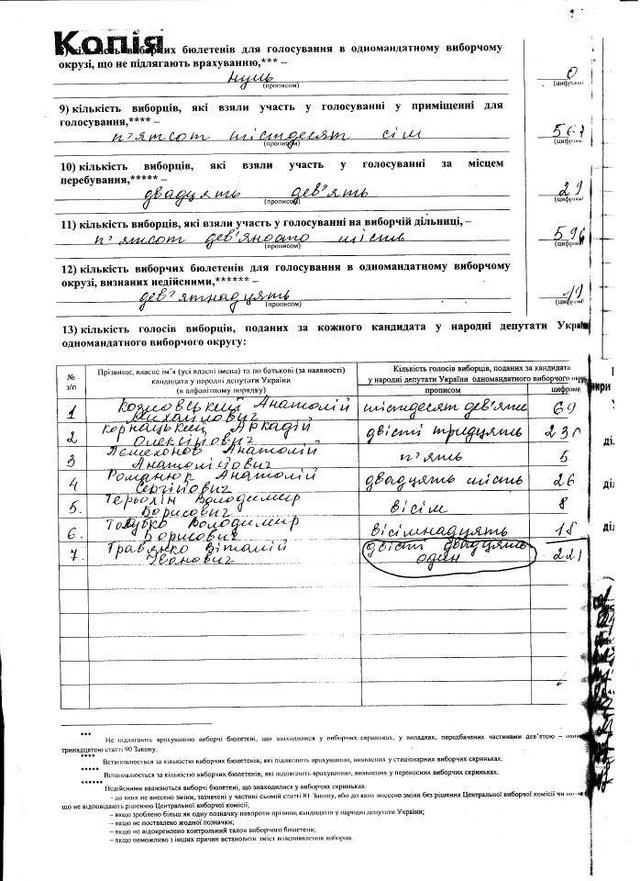 Копія
8) кількість виборчих бюлетенів для голосування в одномандатному виборчому
окрузі, що не підлягають врахуванню,*** –
нуль 0
(прописом) (цифрами)
9) кількість виборців, які взяли участь у голосуванні у приміщенні для
голосування,**** –
п'ятсот шістдесят сім 567
(прописом) (цифрами)
10) кількість виборців, які взяли участь у голосуванні за місцем
перебування,***** –
двадцять дев'ять 29
(прописом) (цифрами)
11) кількість виборців, які взяли участь у голосуванні на виборчій дільниці, –
п'ятсот дев'яносто шість 596
(прописом) (цифрами)
12) кількість виборчих бюлетенів для голосування в одномандатному виборчому
окрузі, визнаних недійсними,****** –
дев'ятнадцять 19
(прописом) (цифрами)
13) кількість голосів виборців, поданих за кожного кандидата у народні депутати Украї
одномандатного виборчого округу:
№ з/п
Прізвище, власне ім'я (усі власні імена) та по батькові (за наявності)
кандидата у народні депутати України
(в алфавітному порядку)
Кількість голосів виборців, поданих за кандидата
у народні депутати України одномандатного виборчого окру
прописом цифрами
1 Анатолій
Михайлович шістдесят дев'ять 69
2 Корнацький Аркадій
Олексійович двісті тридцять 230
3 Анатолій
Анатолійович п'ять 5
4 Романюк Анатолій
Сергійович двадцять шість 26
5. Володимир
Борисович вісім 8
6. Володимир
Борисович вісімнадцять 18
7. Травянко Віталій
Іванович двісті двадцять
один 221
*** Не підлягають врахуванню виборчі бюлетені, що знаходилися у виборчих скриньках, у випадках, передбачених частинами дев'ятою –
тринадцятою статті 90 Закону.
**** Встановлюється за кількістю виборчих бюлетенів, які підлягають врахуванню, винесених у стаціонарних виборчих скриньках.
***** Встановлюється за кількістю виборчих бюлетенів, які підлягають врахуванню, винесених у переносних виборчих скриньках.
****** Недійсними вважаються виборчі бюлетені, що знаходилися у виборчих скриньках:
- до яких не внесено зміни, зазначені у частині сьомій статті 81 Закону, або до яких внесено зміни без рішення Центральної виборчої комісії чи
що не відповідають рішенню Центральної виборчої комісії;
– якщо зроблено більш як одну позначку навпроти прізвищ кандидатів у народні депутати України;
– якщо не поставлено жодної позначки;
– якщо не відокремлено контрольний талон виборчого бюлетеня;
– якщо неможливо з інших причин встановити зміст волевиявлення виборця.